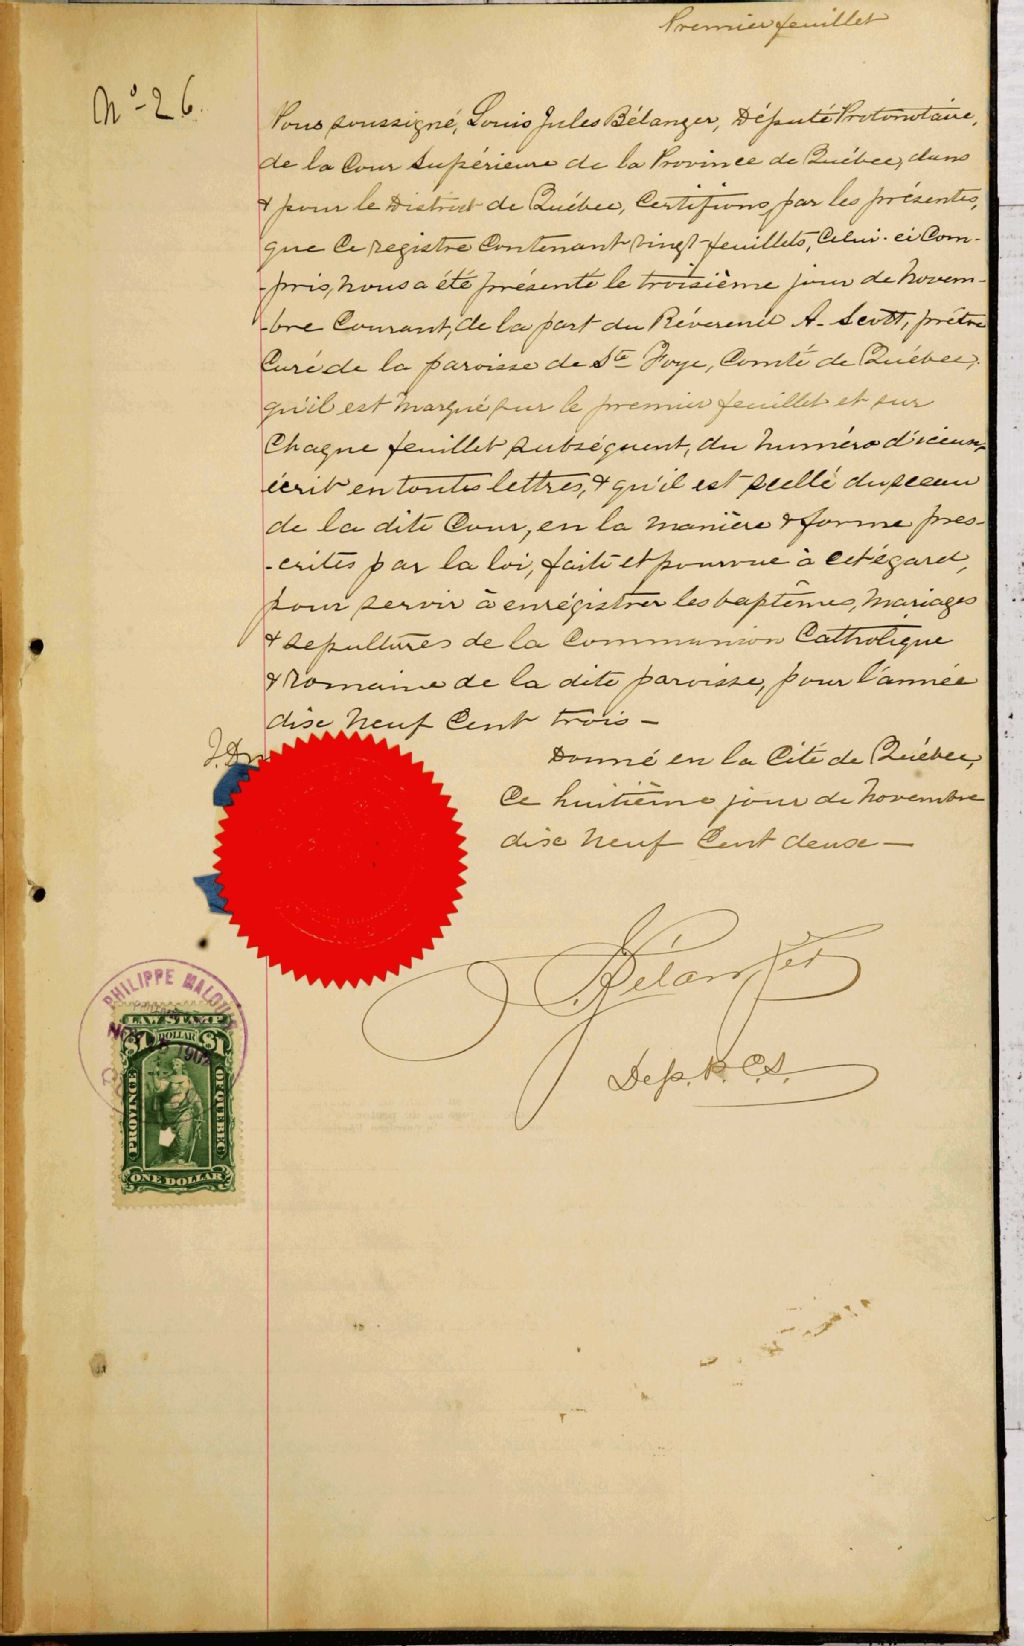 Premier feuillet
No-26.
Nous soussigné, Louis Jules Bélanger, Député Protonotaire,
de la Cour Supérieure de la Province de Québec, dans
& pour le District de Québec, Certifions, par les présentes,
que Ce registre Contenant vingt-feuillets, Celui-ci Com-
-pris, nous a été présenté le troisième jour de Novem-
-bre Courant, de la part du Révérend A. Scott, prêtre
Curé de la paroisse de Ste Foye, Comté de Québec,
qu'il est marqué sur le premier feuillet et sur
Chaque feuillet subséquent, du numéro d'iceux,
écrit en toutes lettres, & qu'il est scellé du sceau
de la dite Cour, en la manière & forme pres-
-crites par la loi, faite et pourvue à cet égard,
pour servir à enrégistrer les baptêmes, mariages
& sepultures de la Communion Catholique
& Romaine de la dite paroisse, pour l'année
dix neuf Cent trois -
Donné en la Cité de Québec,
Ce huitième jour de Novembre
dix neuf Cent deux -
Dep. P. C.S.
PHILIPPE MALOUIN
NOV 1902
LAW STAMP
$1 DOLLAR $1
PROVINCE
OF QUEBEC
ONE DOLLAR